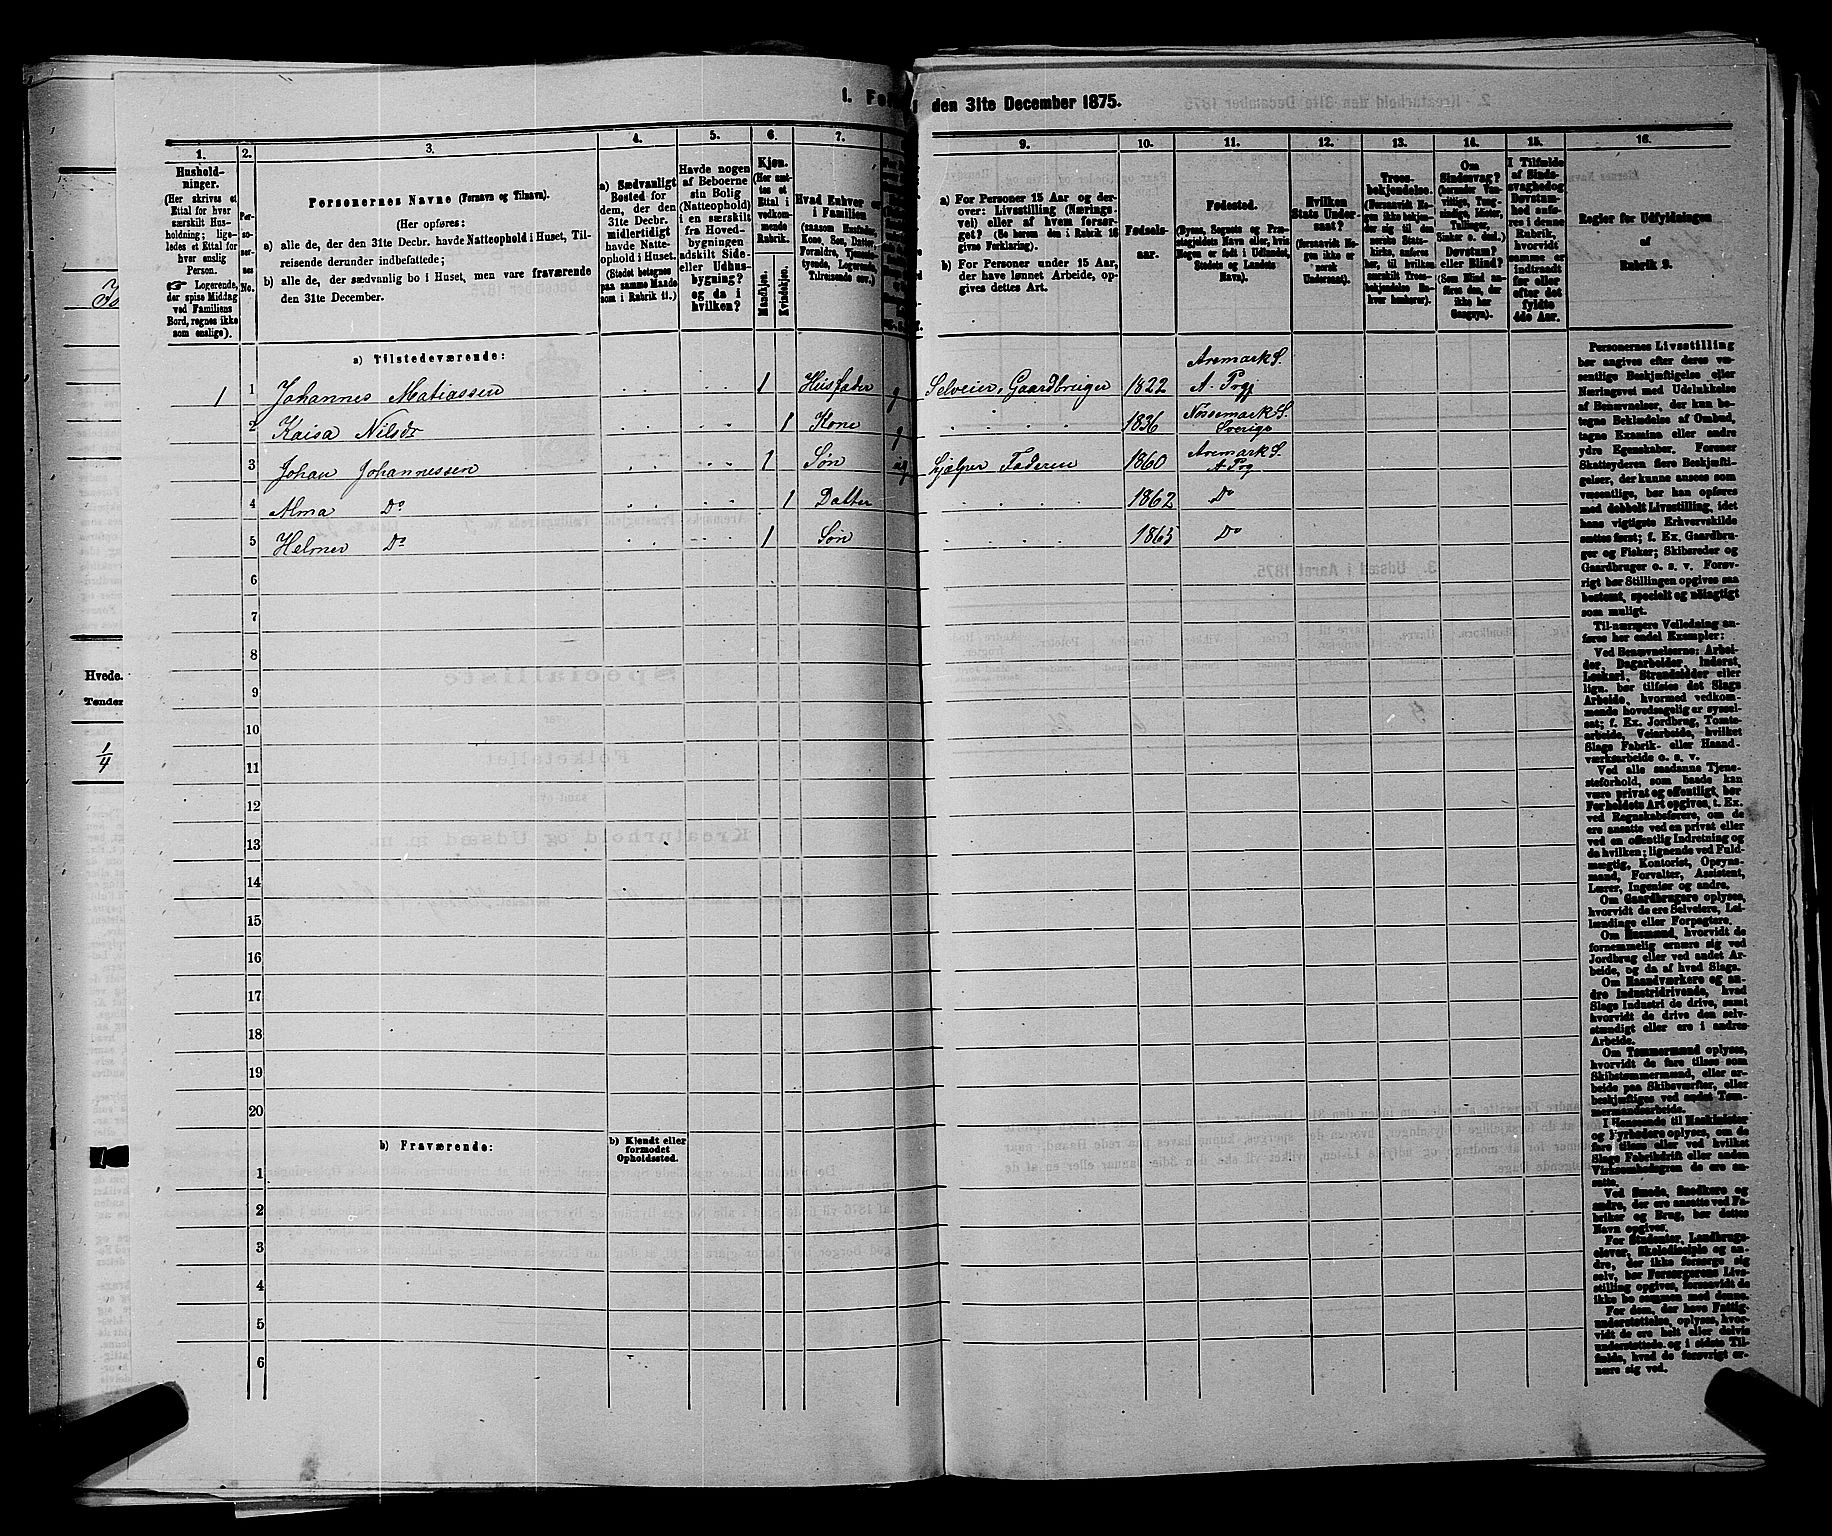 den 31te December 1875.
1. 2. 3. 4. 5. 6. 7.
9. 10. 11. 12. 13. 14. 15. 16.
Hushold-
ninger.
(Her skrives et
Ettal for hver
særskilt Hus-
holdning; lige-
ledes et Ettal for
hver enslig
Person.
☛ Logerende,
der spise Middag
ved Familiens
Bord, regnes ikke
som enslige).
Per-
so-
ner-
nes
No.
Personernes Navne (Fornavn og Tilnavn).
(Her opføres:
a) alle de, der den 31te Decbr. havde Natteophold i Huset, Til-
reisende derunder indbefattede;
b) alle de, der sædvanlig bo i Huset, men vare fraværende
den 31te December.
a) Sædvanligt
Bosted for
dem, der den
31te Decbr.
midlertidigt
havde Natte-
ophold i Huset.
(Stedet betegnes
paa samme Maade
som i Rubrik 11.)
Havde nogen
af Beboerne
sin Bolig
(Natteophold)
i en særskilt
fra Hoved-
bygningen
adskilt Side-
eller Udhus-
bygning?
og da i
hvilken?
Kjøn.
(Her sæt-
tes et
Ettal i
vedkom-
mende
Rubrik.
Mandkjøn.
Kvindekjøn.
Hvad Enhver er
i Familien
(saasom Husfader,
Kone, Søn, Datter,
Forældre, Tjeneste-
tyende, Logerende,
Tilreisende osv.)
a) For Personer 15 Aar og der-
over: Livsstilling (Nærings-
vei) eller af hvem forsør-
get? (Se herom den i Rubrik 16
givne Forklaring).
b) For Personer under 15 Aar,
der have lønnet Arbeide, op-
gives dettes Art.
Fødsels-
aar.
Fødested.
(Byens, Sognets og Præ-
stegjeldets Navn eller, hvis
Nogen er født i Udlandet,
Stedets og Landets
Navn).
Hvilken
Stats Under-
saat?
(forsaavidt No-
gen ikke er
norsk
Undersaat).
Troes-
bekjendelse.
(Forsaavidt No-
gen ikke bekjen-
der sig til den
norske Stats-
kirke, anføres
her, til hvilken
særskilt Troes-
bekjendelse En-
hver henhører).
Om
Sindssvag?
(herunder Van-
vittige, Tung-
sindige, Idioter,
Tullinger,
Sinker o. desl.)
Døvstum?
eller Blind?
(Som Blind an-
føres den, der
ikke har
Gangsyn).
I Tilfælde
af Sinds-
svaghed og
Døvstum-
hed anfø-
res i denne
Rubrik,
hvorvidt
samme er
indtraadt
før eller
efter det
fyldte
4de Aar.
Regler for Udfyldningen
af
Rubrik 9.
a) Tilstedeværende:
1 1 Johannes Matiassen 1 Husfader g Selveier, Gaardbruger 1822 Aremark S. A. Prgj
2 Kaisa Nilsdr 1 Kone g 1836 Nössemark S. Sverige
3 Johan Johannessen 1 Søn ug hjælper Faderen 1860 Aremark S. A Prg
4 Alma Do 1 Datter 1862 Do
5 Helmer Do 1 Søn 1865 Do
6
7
8
9
10
11
12
13
14
15
16
17
18
19
20
b) Fraværende:
b) Kjendt eller
formodet
Opholdssted.
1
2
3
4
5
6
Hvede.
Tønder
1/4
Personernes Livsstilling
bør angives efter deres væ-
sentlige Beskjæftigelse eller
Næringsvei med Udelukkelse
af Benævnelser, der kun be-
tegne Beklædelse af Ombud,
tagne Examina eller andre
ydre Egenskaber. Forener
Skatteyderen flere Beskjæfti-
gelser, der kunne ansees som
væsentlige, bør han opføres
med dobbelt Livsstilling, idet
hans vigtigste Erhvervskilde
sættes først; f. Ex. Gaardbru-
ger og Fisker; Skibsreder og
Gaardbruger o. s. v. Forøv-
rigt bør Stillingen opgives saa
bestemt, specielt og nøiagtigt
som muligt.
Til nærmere Veiledning an-
føres her endel Exempler:
Ved Benævnelserne: Arbei-
der, Dagarbeider, Inderst,
Løskarl, Strandsidder eller
lign. bør tilføies det Slags
Arbeide, hvormed vedkom-
mende hovedsagelig er syssel-
sat; f. Ex. Jordbrug, Tomte-
arbeide, Veiarbeide, hvilket
Slags Fabrik- eller Haand-
værksarbeide o. s. v.
Ved alle saadanne Tjene-
steforhold, som baade kan
være privat og offentligt, bør
Forholdets Art opgives, t. Ex.
ved Regnskabsførere, om de
ere ansatte ved en privat eller
ved en offentlig Indretning og
da hvilken; lignende ved Fuld-
mægtig, Kontorist, Opsyns-
mand, Forvalter, Assistent,
Lærer, Ingeniør og andre.
Om Gaardbrugere oplyses,
hvorvidt de ere Selveiere, Lei-
lændinge eller Forpagtere.
Om Husmænd, hvorvidt de
fornemmelig ernære sig ved
Jordbrug eller ved andet Ar-
beide, og da af hvad Slags.
Om Haandværkere og an-
dre Industridrivende, hvad
Slags Industri de drive, samt
hvorvidt de drive den selv-
stændigt eller ere i andres
Arbeide.
Om Tømmermænd oplyses,
hvorvidt de fare tilsøs som
Skibstømmermænd, eller ar-
beide paa Skibsværfter, eller
beskjæftiges ved andet Tøm-
mermandsarbeide.
I Henseende til Maskinister
og Fyrbødere oplyses, om de
fare tilsøs eller ved hvilket
Slags Fabrikdrift eller anden
Virksomhedsgren de ere an-
satte.
Ved Smede, Snedkere og
andre, der ere ansatte ved Fa-
briker og Brug, bør dettes
Navn opgives.
For Studenter, Landbrugs-
elever, Skoledisciple og an-
dre, der ikke forsørge sig
selv, bør Forsørgerens Livs-
stilling opgives, forsaavidt de
ikke bo sammen med denne.
For dem, der have Fattig-
understøttelse, oplyses, hvor-
vidt de ere helt eller delvis
understøttede og i sidste Til-
fælde, hvad de forøvrigt er-
nære sig ved.